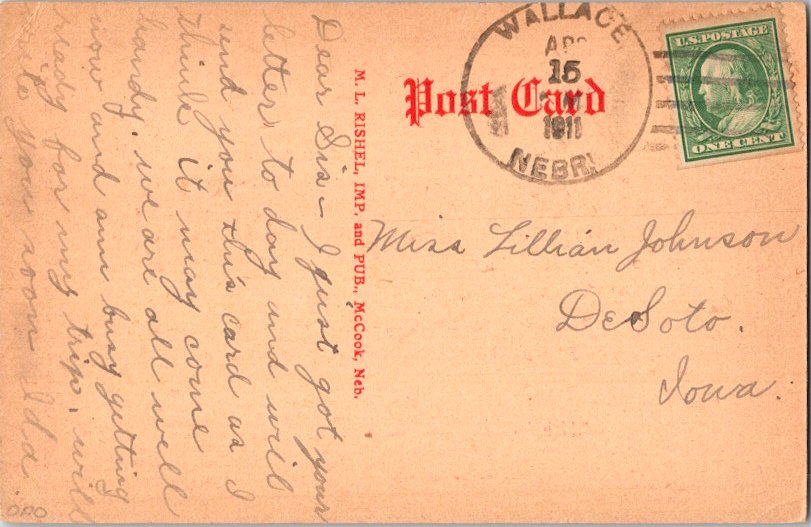 WALLACE
APR
15
1911
NEBR.
U.S. POSTAGE
ONE CENT
Post Card
M. L. RISHEL, IMP. and PUB., McCook, Neb.
Miss Lillian Johnson
DeSoto.
Iowa.
Dear Sis – I just got your
letter to day and will
send you this card as I
think it may come
handy. we are all well
now and am busy getting
ready for my trip. will
write you soon Ida.